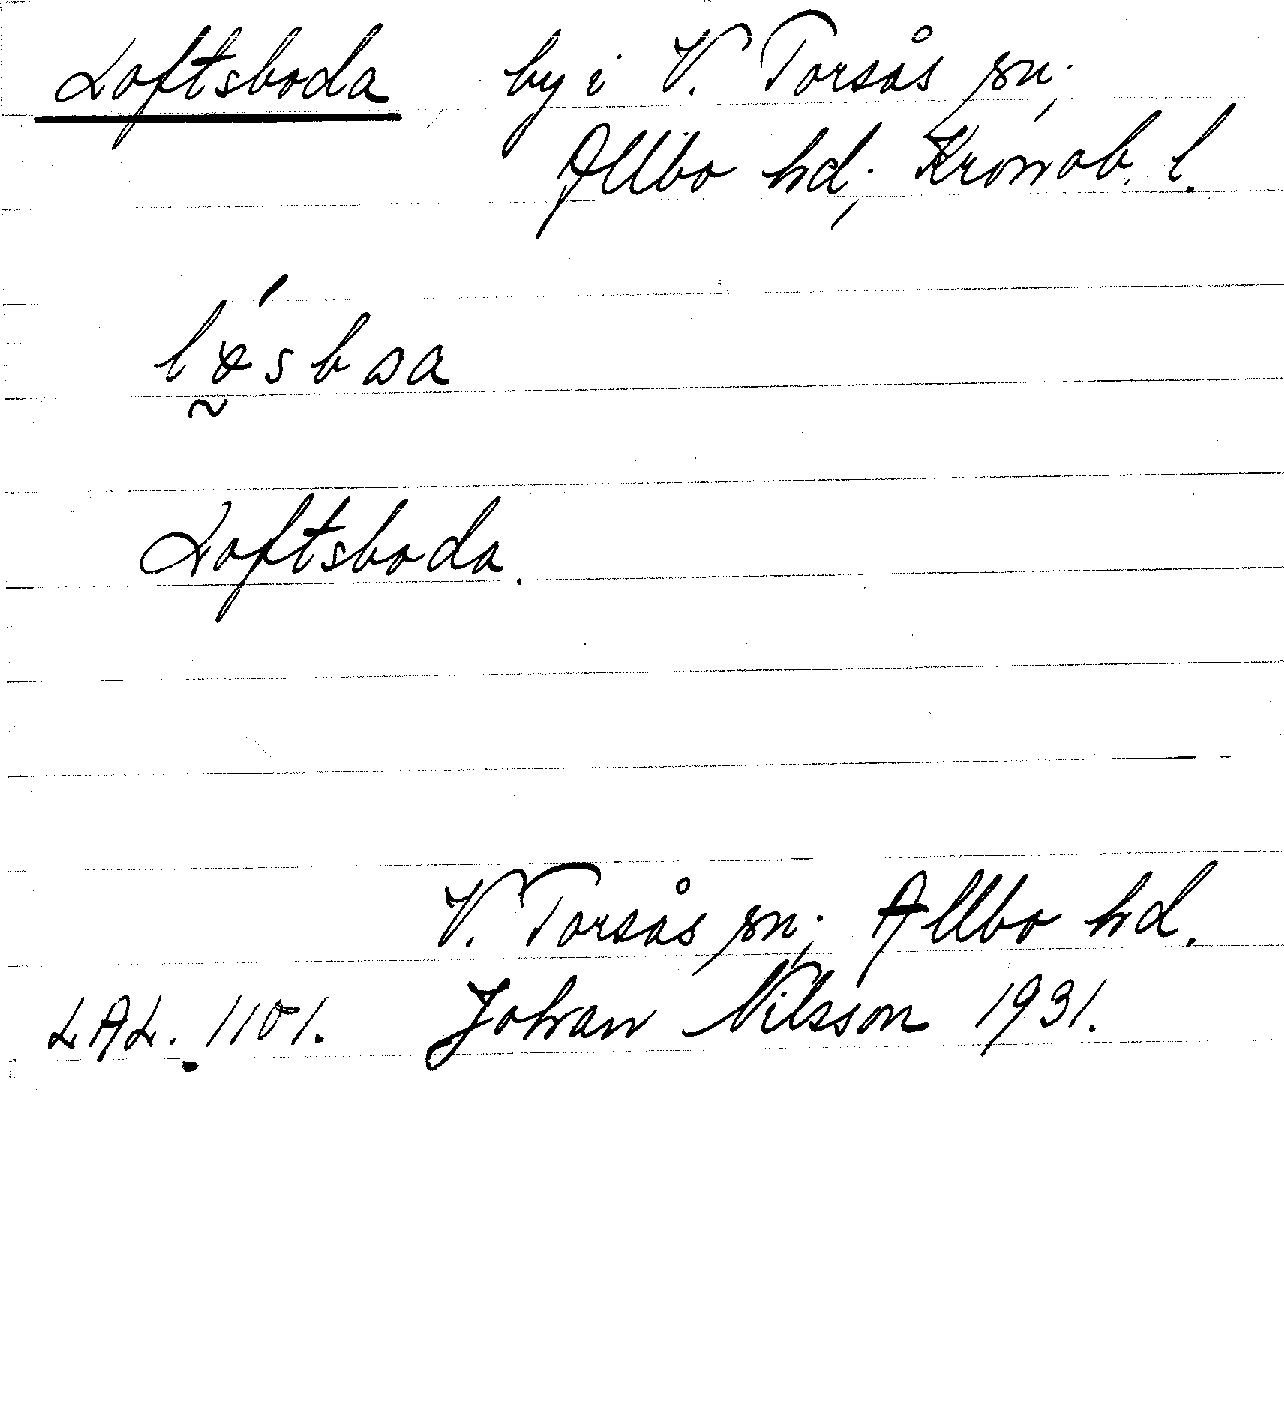 Loftsboda by i V. Torsås sn;
Allbo hd; Kronob. l.
Loftsboda.
V. Torsås sn; Allbo hd.
LAL. 1101. Johan Nilsson 1931.